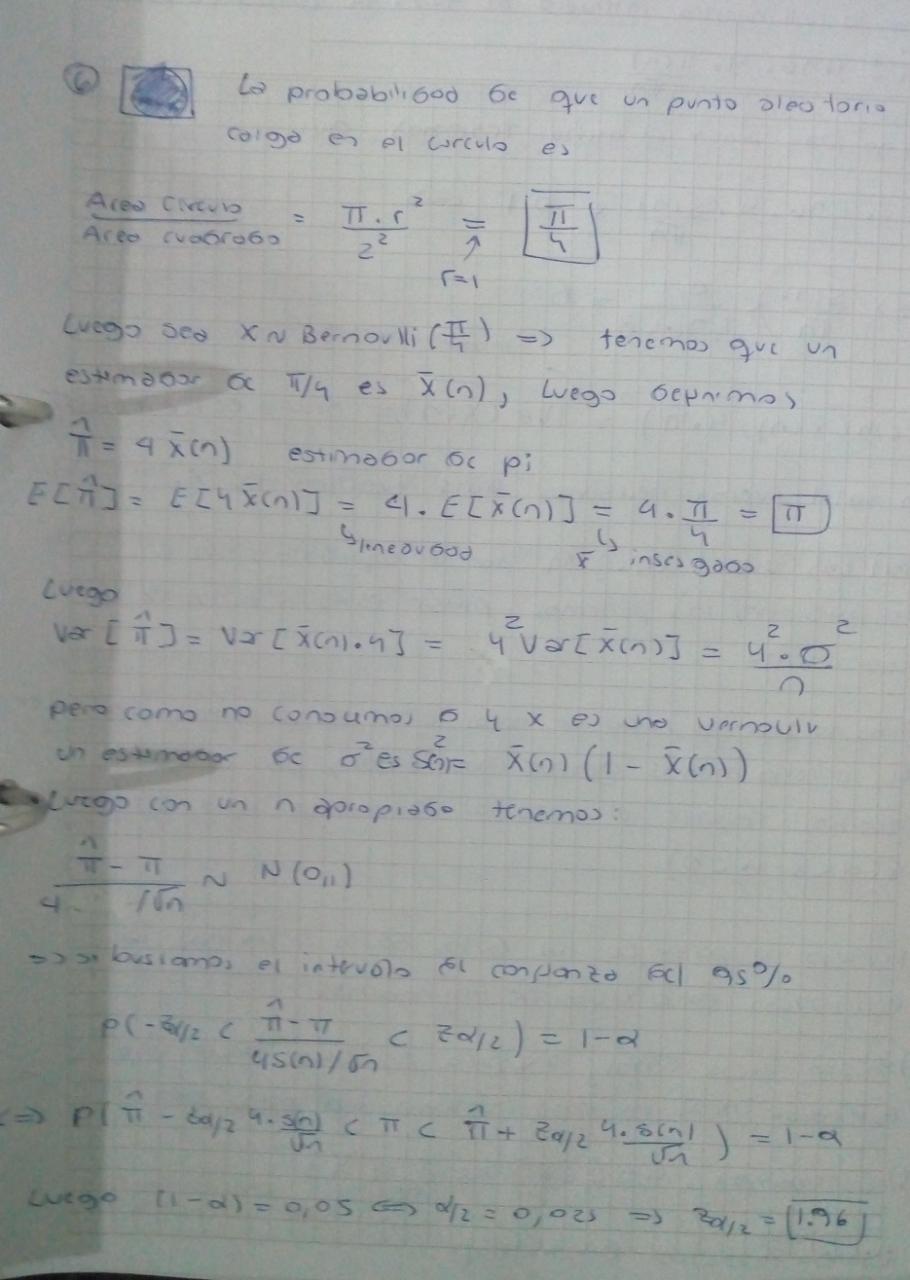 ⑥ La probabilidad de que un punto aleatorio
caiga en el circulo es
Area Circulo / Area cuadrado = π.r² / 2² = π/4
r=1
Luego sea X ~ Bernoulli (π/4) => tenemos que un
estimador de π/4 es X̄(n), luego definimos
π̂ = 4 X̄(n) estimador de pi
E[π̂] = E[4X̄(n)] = 4. E[X̄(n)] = 4. π/4 = π
↳ linealidad ↳ X̄ insesgado
Luego
Var[π̂] = Var[X̄(n).4] = 4² Var[X̄(n)] = 4².σ² / n
pero como no conocemos σ y x es una vernoulli
un estimador de σ² es S²(n) = X̄(n) (1 - X̄(n))
Luego con un n apropiado tenemos:
π̂ - π / 4 /√n ~ N(0,1)
=> si buscamos el intervalo de confianza del 95%
P(-zα/2 < π̂ - π / 4S(n)/√n < zα/2) = 1-α
<=> P(π̂ - zα/2 4.S(n)/√n < π < π̂ + zα/2 4.S(n)/√n) = 1-α
Luego (1-α) = 0,05 <=> α/2 = 0,025 => zα/2 = 1.96